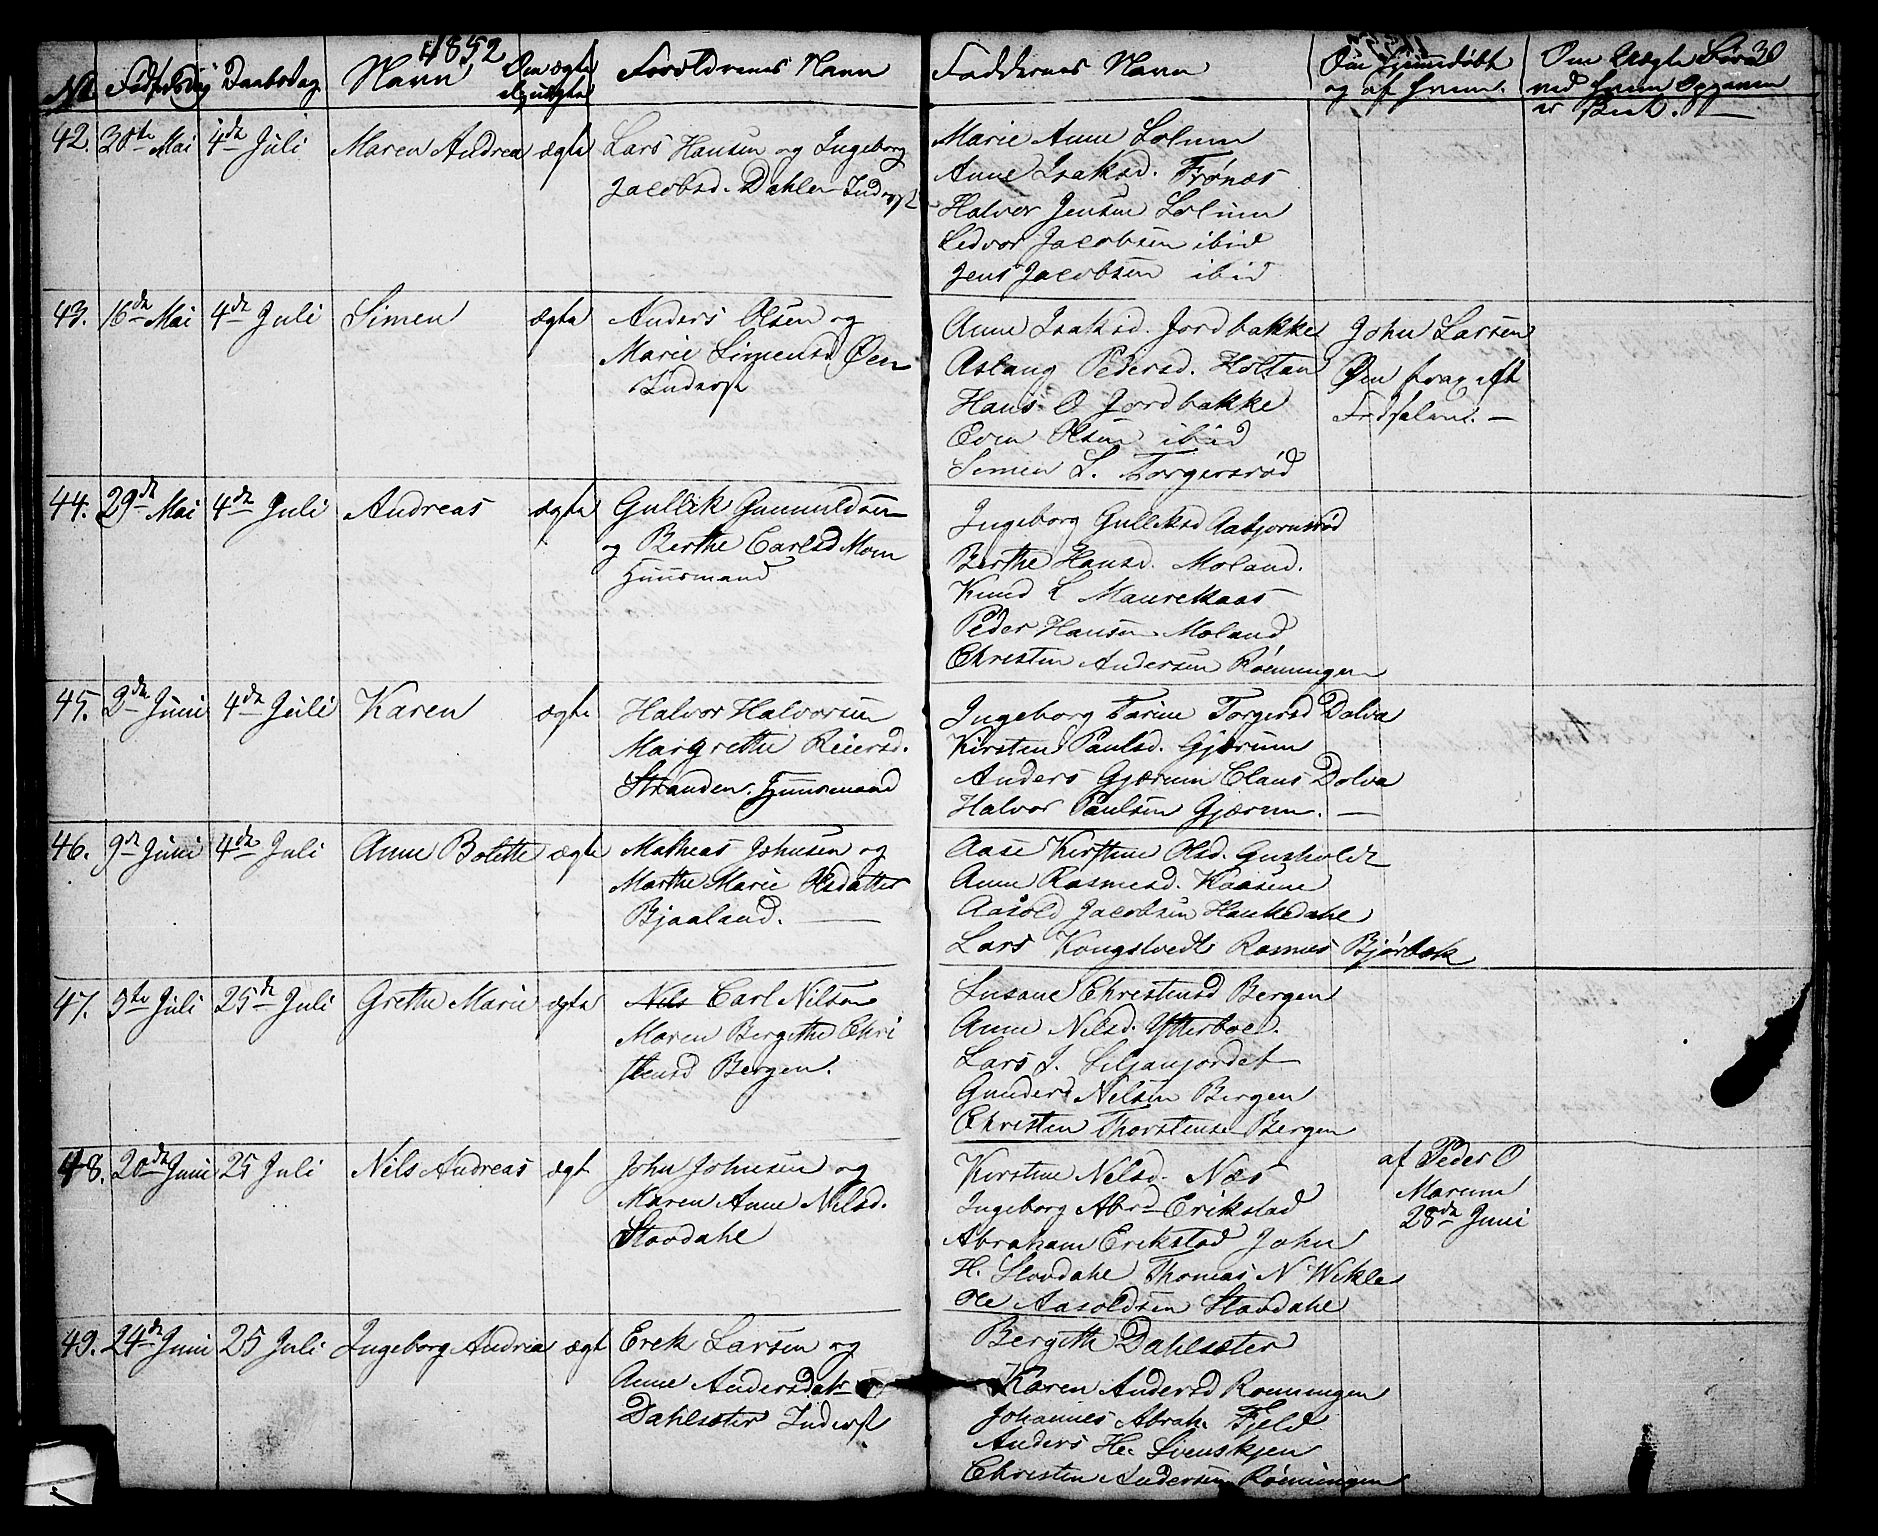 1852
No. Fødselsdag Daabsdag Navn Om ægte el. uægte Forældrenes Navn Faddernes Navn Om hjemmedøbt og af hvem. Om Uægte Børn ved hvem Opgaven er Besk. 30
42. 30te Mai 4de Juli Maren Andrea ægte Lars Hansen og Ingeborg
Jacobsd. Dahlen Inderst
Marie Anne Lolum
Anne Isaksd. Frønæs
Halvor Jensen Lolum
Ledvor Jacobsen ibid
Jens Jacobsen ibid
43. 16de Mai 4de Juli Simen ægte Anders Olsen og
Marie Simensd Øen
Inderst
Anne Isaksd. Jordbakke
Aslaug Pedersd. Holtan
Hans O Jordbakke
Even Olsen ibid
Simen L. Torgersrød
John Larsen
Øen strax eft
Fødselen. —
44. 29de Mai 4de Juli Andreas ægte Gullik Gunnuldsen
og Berthe Carlsd Moen
Huusmand
Ingeborg Gulliksd Aasbjornsrød
Berthe Hansd. Moland.
Knud L Maurekaas
Peder Hansen Moland
Christen Andersen Rønningen
45. 2den Juni 4de Juli Karen ægte Halvor Halvorsen
Margrethe Reiersd.
Stranden. Huusmand
Ingeborg Tarine Torgersd Dolva
Kirsten Paulsd. Gjærum
Anders Gjærum Claus Dolva
Halvor Paulsen Gjærum. —
46. 9de Juni 4de Juli Anne Bolette ægte Mathias Johnsen og
Marthe Marie Olsdatter
Bjaaland. —
Aase Kirstine Olsd. Gusholdt
Anne Rasmusd. Kaasene
Aasold Jacobsen Haukedahl
Lars Kongstvedt Rasmus Bjørbæk
47. 5te Juli 25de Juli Grethe Marie ægte Nils Carl Nilsen
Maren Bergithe Chri
stensd Bergen.
Susane Christensd Bergen
Anne Nilsd. Ytterboe.
Lars J. Siljanjordet
Gunder Nilsen Bergen
Christen Thorstensen Bergen
48. 20de Juni 25 Juli Nils Andreas ægt John Johnsen og
Maren Anne Nilsd.
Stavdahl
Kirstine Nilsd. Næs
Ingeborg Abr.d Erikstad
Abraham Erikstad John
H. Stovdahl Thomas N Wekle
Ole Aasoldsen Stavdahl
af Peder O
Marum
28de Juni
49. 24de Juni 25 Juli Ingeborg Andrea ægt Erek Larsen og
Anne Andersdatr
Dahlsæter Inderst
Bergithe Dahlsæter
Karen Andersd Ronningen
Johannes Abrah. Fjeld
Anders He. Svenskjen
Christen Andersen Rønningen